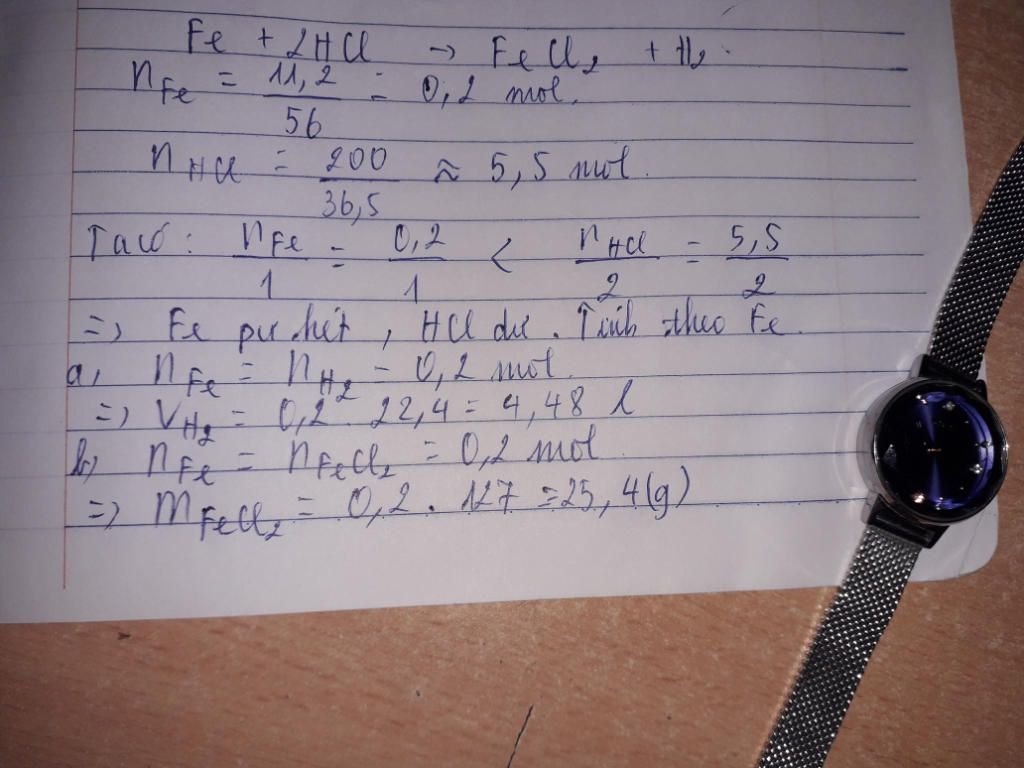 Fe + 2HCl → FeCl₂ + H₂.
n Fe = 11,2 / 56 = 0,2 mol.
n HCl = 200 / 36,5 ≈ 5,5 mol.
Ta có : n Fe / 1 = 0,2 / 1 < n HCl / 2 = 5,5 / 2
=> Fe pư hết, HCl dư. Tính theo Fe.
a, n Fe = n H₂ = 0,2 mol.
=> V H₂ = 0,2 . 22,4 = 4,48 l
b, n Fe = n FeCl₂ = 0,2 mol
=> m FeCl₂ = 0,2 . 127 = 25,4 (g)